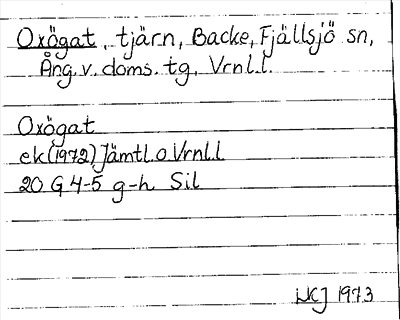 Oxögat, tjärn, Backe, Fjällsjö sn,
Ång. v. doms. tg, Vrnl.l.
Oxögat
ek (1972) Jämtl. o Vrnl.l
20 G 4-5 g-h Sil
1973